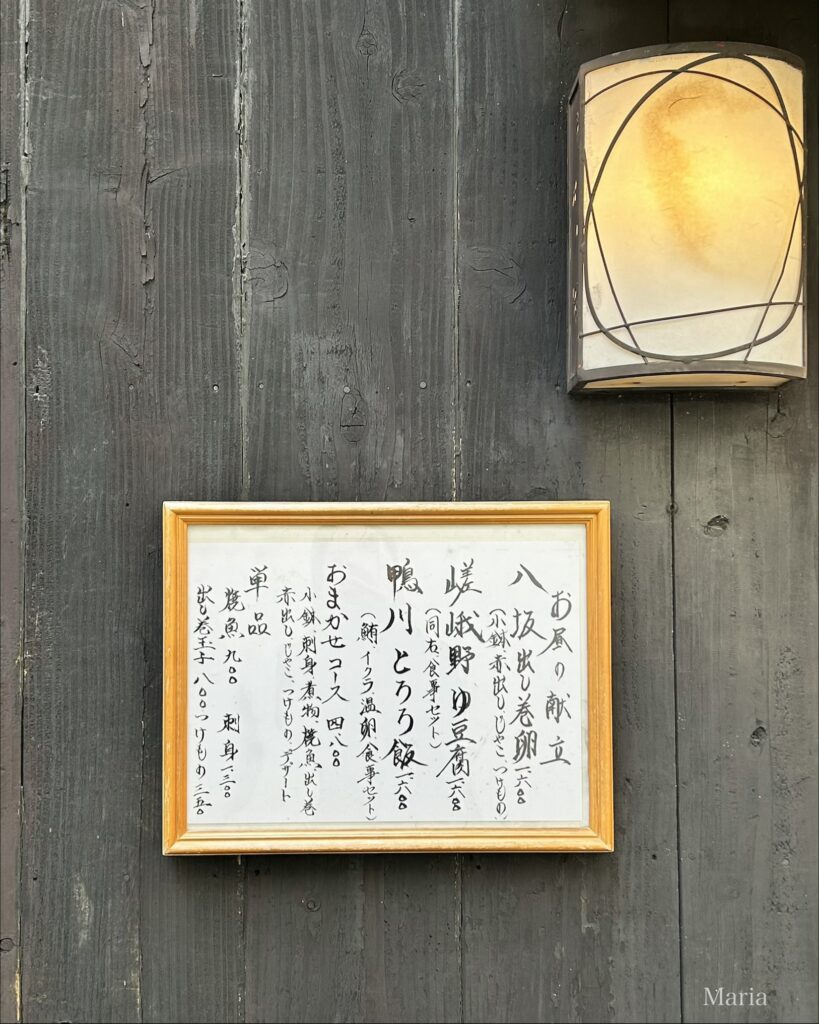 お昼の献立
八坂出し巻卵 一、六〇〇
(小鉢、赤出し、じゃこ、つけもの)
嵯峨野ゆ豆腐 一、六〇〇
(同右、食事セット)
鴨川とろろ飯 一、六〇〇
(鮪、イクラ、温卵、食事セット)
おまかせコース 四、八〇〇
小鉢、刺身、煮物、焼魚、出し巻
赤出し、じゃこ、つけもの、デザート
単品
焼魚 九〇〇 刺身 一、三〇〇
出し巻玉子 八〇〇 つけもの 三五〇
Maria